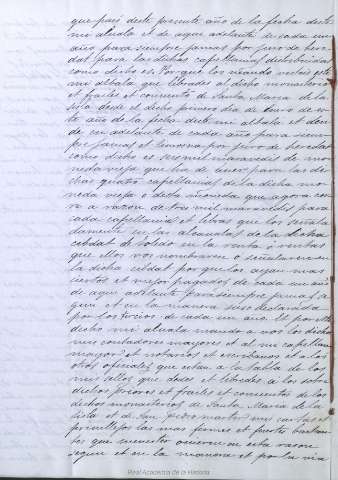 que pasó deste presente año de la fecha deste
mi alvala et de aqui adelante de cada un
año para siempre jamas por juro de here-
dat para las dichas capellanias distribuidas
como dicho es. Por que vos mando vista este
mi alvala que libredes al dicho monesterio
et frailes et convento de Santa Maria de la
Sisla desde el dicho primero dia de Enero de es-
te año de la fecha deste mi albala et den-
de en adelante de cada año para siem-
pre jamas et limosna por juro de heredat
como dicho es seis mil maravedis de mo-
neda vieja que ha de aver para las di-
chas quatro capellanias de la dicha mo-
neda vieja o desta moneda que agora co-
rre a razon de tres mil maravedis para
cada capellania et librar que los señala-
damente en las alcavalas de la dicha
cibdat de Toledo en la renta o rentas
que ellos vos nombraren o señalaren en
la dicha cibdat por que los ayan mas
ciertos et mejor pagados de cada un año
de aqui adelante para siempre jamas, se-
gun et en la manera suso declarada
por los tercios de cada un año. Et por este
dicho mi alvala mando a vos los dichos
mis contadores mayores et al mi capellan
mayor et notarios et escribanos et a los
otros oficiales que estan a la tabla de los
mis sellos que dedes et libredes a los sobre
dichos priores et frailes et conventos de los
dichos monasterios de Santa Maria de la
Sisla et de San Pedro martir mis cartas et
privillejos las mas firmes et fuertes bastan-
tes que menester ovieren en esta rason
segun et en la manera et por la via
Real Academia de la Historia